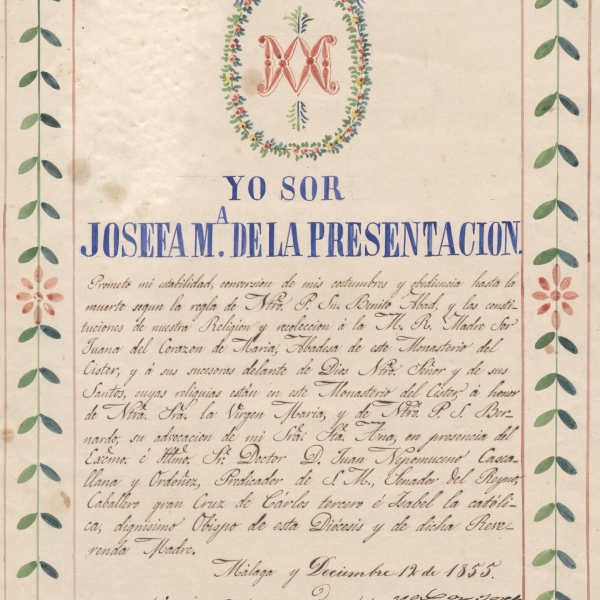 YO SOR
JOSEFA M.ᴬ DE LA PRESENTACION.
Prometo mi estabilidad, conversion de mis costumbres y obediencia hasta la
muerte segun la regla de Ntrô. P. Sn. Benito Abad, y las consti-
tuciones de nuestra Religion y recoleccion à la M. R. Madre Sor
Juana del Corazon de Maria, Abadesa de este Monasterio del
Cister, y à sus sucesoras delante de Dios Ntrô Señor y de sus
Santos, cuyas reliquias están en este Monasterio del Cister, à honor
de Ntrâ. Srâ. la Virgen Maria, y de Ntrô P. S. Ber-
nardo, su advocacion de mi Srâ. Stâ. Ana, en presencia del
Excmo. é Iltmo. Sr. Doctor D. Juan Nepomuceno Casca-
llana y Ordoñez, Predicador de S. M., Senador del Reyno,
Caballero gran Cruz de Cárlos tercero é Isabel la católi-
ca, dignisimo Obispo de esta Diócesis y de dicha Reve-
renda Madre.
Málaga y Deciembre 12 de 1855.